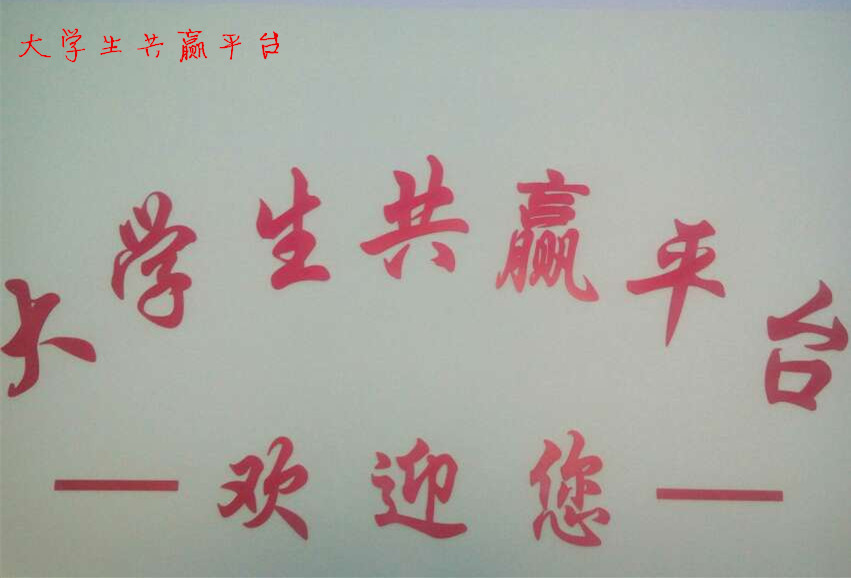 大学生共赢平台
大学生共赢平台
欢迎您